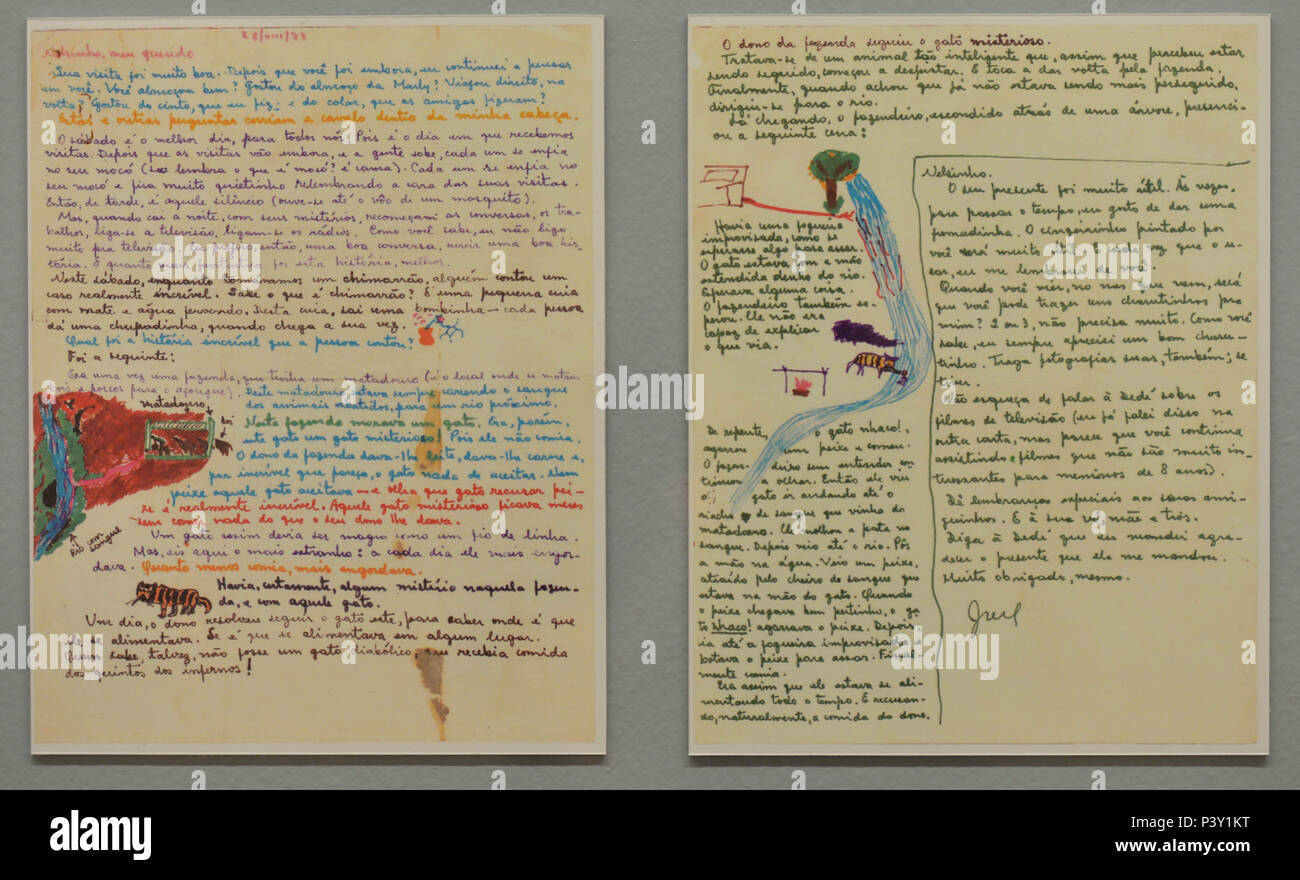 22/VIII/73
Nelsinho, meu querido
Sua visita foi muito boa. Depois que você foi embora, eu continuei a pensar
em você. Você almoçou bem? Gostou do almoço da Marly? Viajou direito, na
volta? Gostou do cinto, que eu fiz; e do colar, que as amigas fizeram?
Estas e outras perguntas corriam a cavalo dentro da minha cabeça.
O sábado é o melhor dia, para todos nós. Pois é o dia em que recebemos
visitas. Depois que as visitas vão embora, e a gente sobe, cada um se enfia
no seu mocó (se lembra o que é mocó? é cama). Cada um se enfia no
seu mocó e fica muito quietinho relembrando a cara das suas visitas.
Então, de tarde, é aquele silêncio (ouve-se até o vôo de um mosquito).
Mas, quando cai a noite, com seus mistérios, recomeçam as conversas, os tra-
balhos, liga-se a televisão, ligam-se os rádios. Como você sabe, eu não ligo
muito pra televisão. Eu prefiro, então, uma boa conversa, ouvir uma boa his-
tória. E quanto mais fantástica for esta história, melhor.
Neste sábado, enquanto tomávamos um chimarrão, alguém contou um
caso realmente incrível. Sabe o que é chimarrão? É uma pequena cuia
com mate e água fervendo. Desta cuia, sai uma bombinha — cada pessoa
dá uma chupadinha, quando chega a sua vez.
Qual foi a história incrível que a pessoa contou?
Foi a seguinte:
Era uma vez uma fazenda, que tinha um matadouro (é o local onde se matam
bois e porcos para o açougue). Deste matadouro estava sempre correndo o sangue
dos animais abatidos, para um rio próximo.
matadouro
boi
Nesta fazenda morava um gato. Era, porém,
este gato um gato misterioso. Pois ele não comia.
O dono da fazenda dava-lhe leite, dava-lhe carne e,
por incrível que pareça, o gato nada de aceitar. Nem
peixe aquele gato aceitava — e olha que gato recusar pei-
xe é realmente incrível. Aquele gato misterioso ficava meses
sem comer nada do que o seu dono lhe dava.
Rio com
sangue
Um gato assim devia ser magro como um fio de linha.
Mas, eis aqui o mais estranho: a cada dia ele mais engor-
dava. Quanto menos comia, mais engordava.
Havia, certamente, algum mistério naquela fazen-
da, e com aquele gato.
Um dia, o dono resolveu seguir o gato este, para saber onde é que
ele se alimentava. Se é que se alimentava em algum lugar.
Quem sabe, talvez, não fosse um gato diabólico, que recebia comida
dos quintos dos infernos!
O dono da fazenda seguiu o gato misterioso.
Tratava-se de um animal tão inteligente que, assim que percebeu estar
sendo seguido, começou a despistar. E toca a dar volta pela fazenda.
Finalmente, quando achou que já não estava sendo mais perseguido,
dirigiu-se para o rio.
Lá chegando, o fazendeiro, escondido atrás de uma árvore, presenci-
ou a seguinte cena:
Havia uma fogueira
improvisada, como se
esperasse algo para assar.
O gato estava com a mão
estendida dentro do rio.
Esperava alguma coisa.
O fazendeiro também es-
perou. Ele não era
capaz de explicar
o que via.
De repente, o gato nhaco!,
agarrou um peixe e comeu.
O fazen- deiro sem entender con-
tinuou a olhar. Então ele viu
o gato ir andando até o
riacho de sangue que vinha do
matadouro. Ele molhou a pata no
sangue. Depois veio até o rio. Pôs
a mão na água. Veio um peixe,
atraído pelo cheiro de sangue que
estava na mão do gato. Quando
o peixe chegava bem pertinho, o ga-
to nhaco! agarrava o peixe. Depois
ia até a fogueira improvisada
botava o peixe para assar. Final-
mente comia.
Era assim que ele estava se ali-
mentando todo o tempo. E recusan-
do, naturalmente, a comida do dono.
Nelsinho.
O seu presente foi muito útil. Às vezes,
para passar o tempo, eu gosto de dar uma
fumadinha. O cinzeirinho pintado por
você será muito útil. E cada vez que o u-
sar, eu me lembrarei de você.
Quando você vier, no mês que vem, será
que você pode trazer uns charutinhos pra
mim? 2 ou 3, não precisa muito. Como você
sabe, eu sempre apreciei um bom charu-
tinho. Traga fotografias suas, também; se
tiver.
Não esqueça de falar à Dedé sobre os
filmes de televisão (eu já falei disso na
outra carta, mas parece que você continua
assistindo filmes que não são muito in-
teressantes para meninos de 8 anos).
Dê lembranças especiais aos seus ami-
guinhos. E à sua vó, mãe e tios.
Diga à Dedé que eu mandei agra-
decer o presente que ela me mandou.
Muito obrigado, mesmo.
alamy
alamy stock photo
P3Y1KT
www.alamy.com